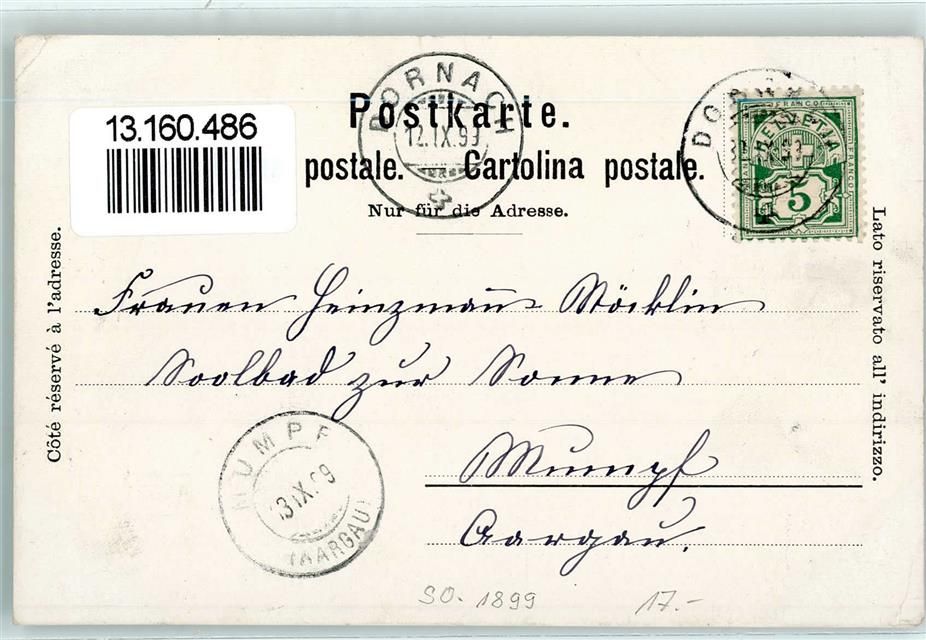 13.160.486
DORNACH
12.IX.99
Postkarte.
postale. Cartolina postale.
Nur für die Adresse.
FRANCO
HELVETIA
5
Côté réservé à l'adresse.
Lato riservato all' indirizzo.
Frauen Heinzmann-Stöcklin
Soolbad zur Sonne
Mumpf
Aargau.
MUMPF
13.IX.99
(AARGAU)
SO. 1899
17.-